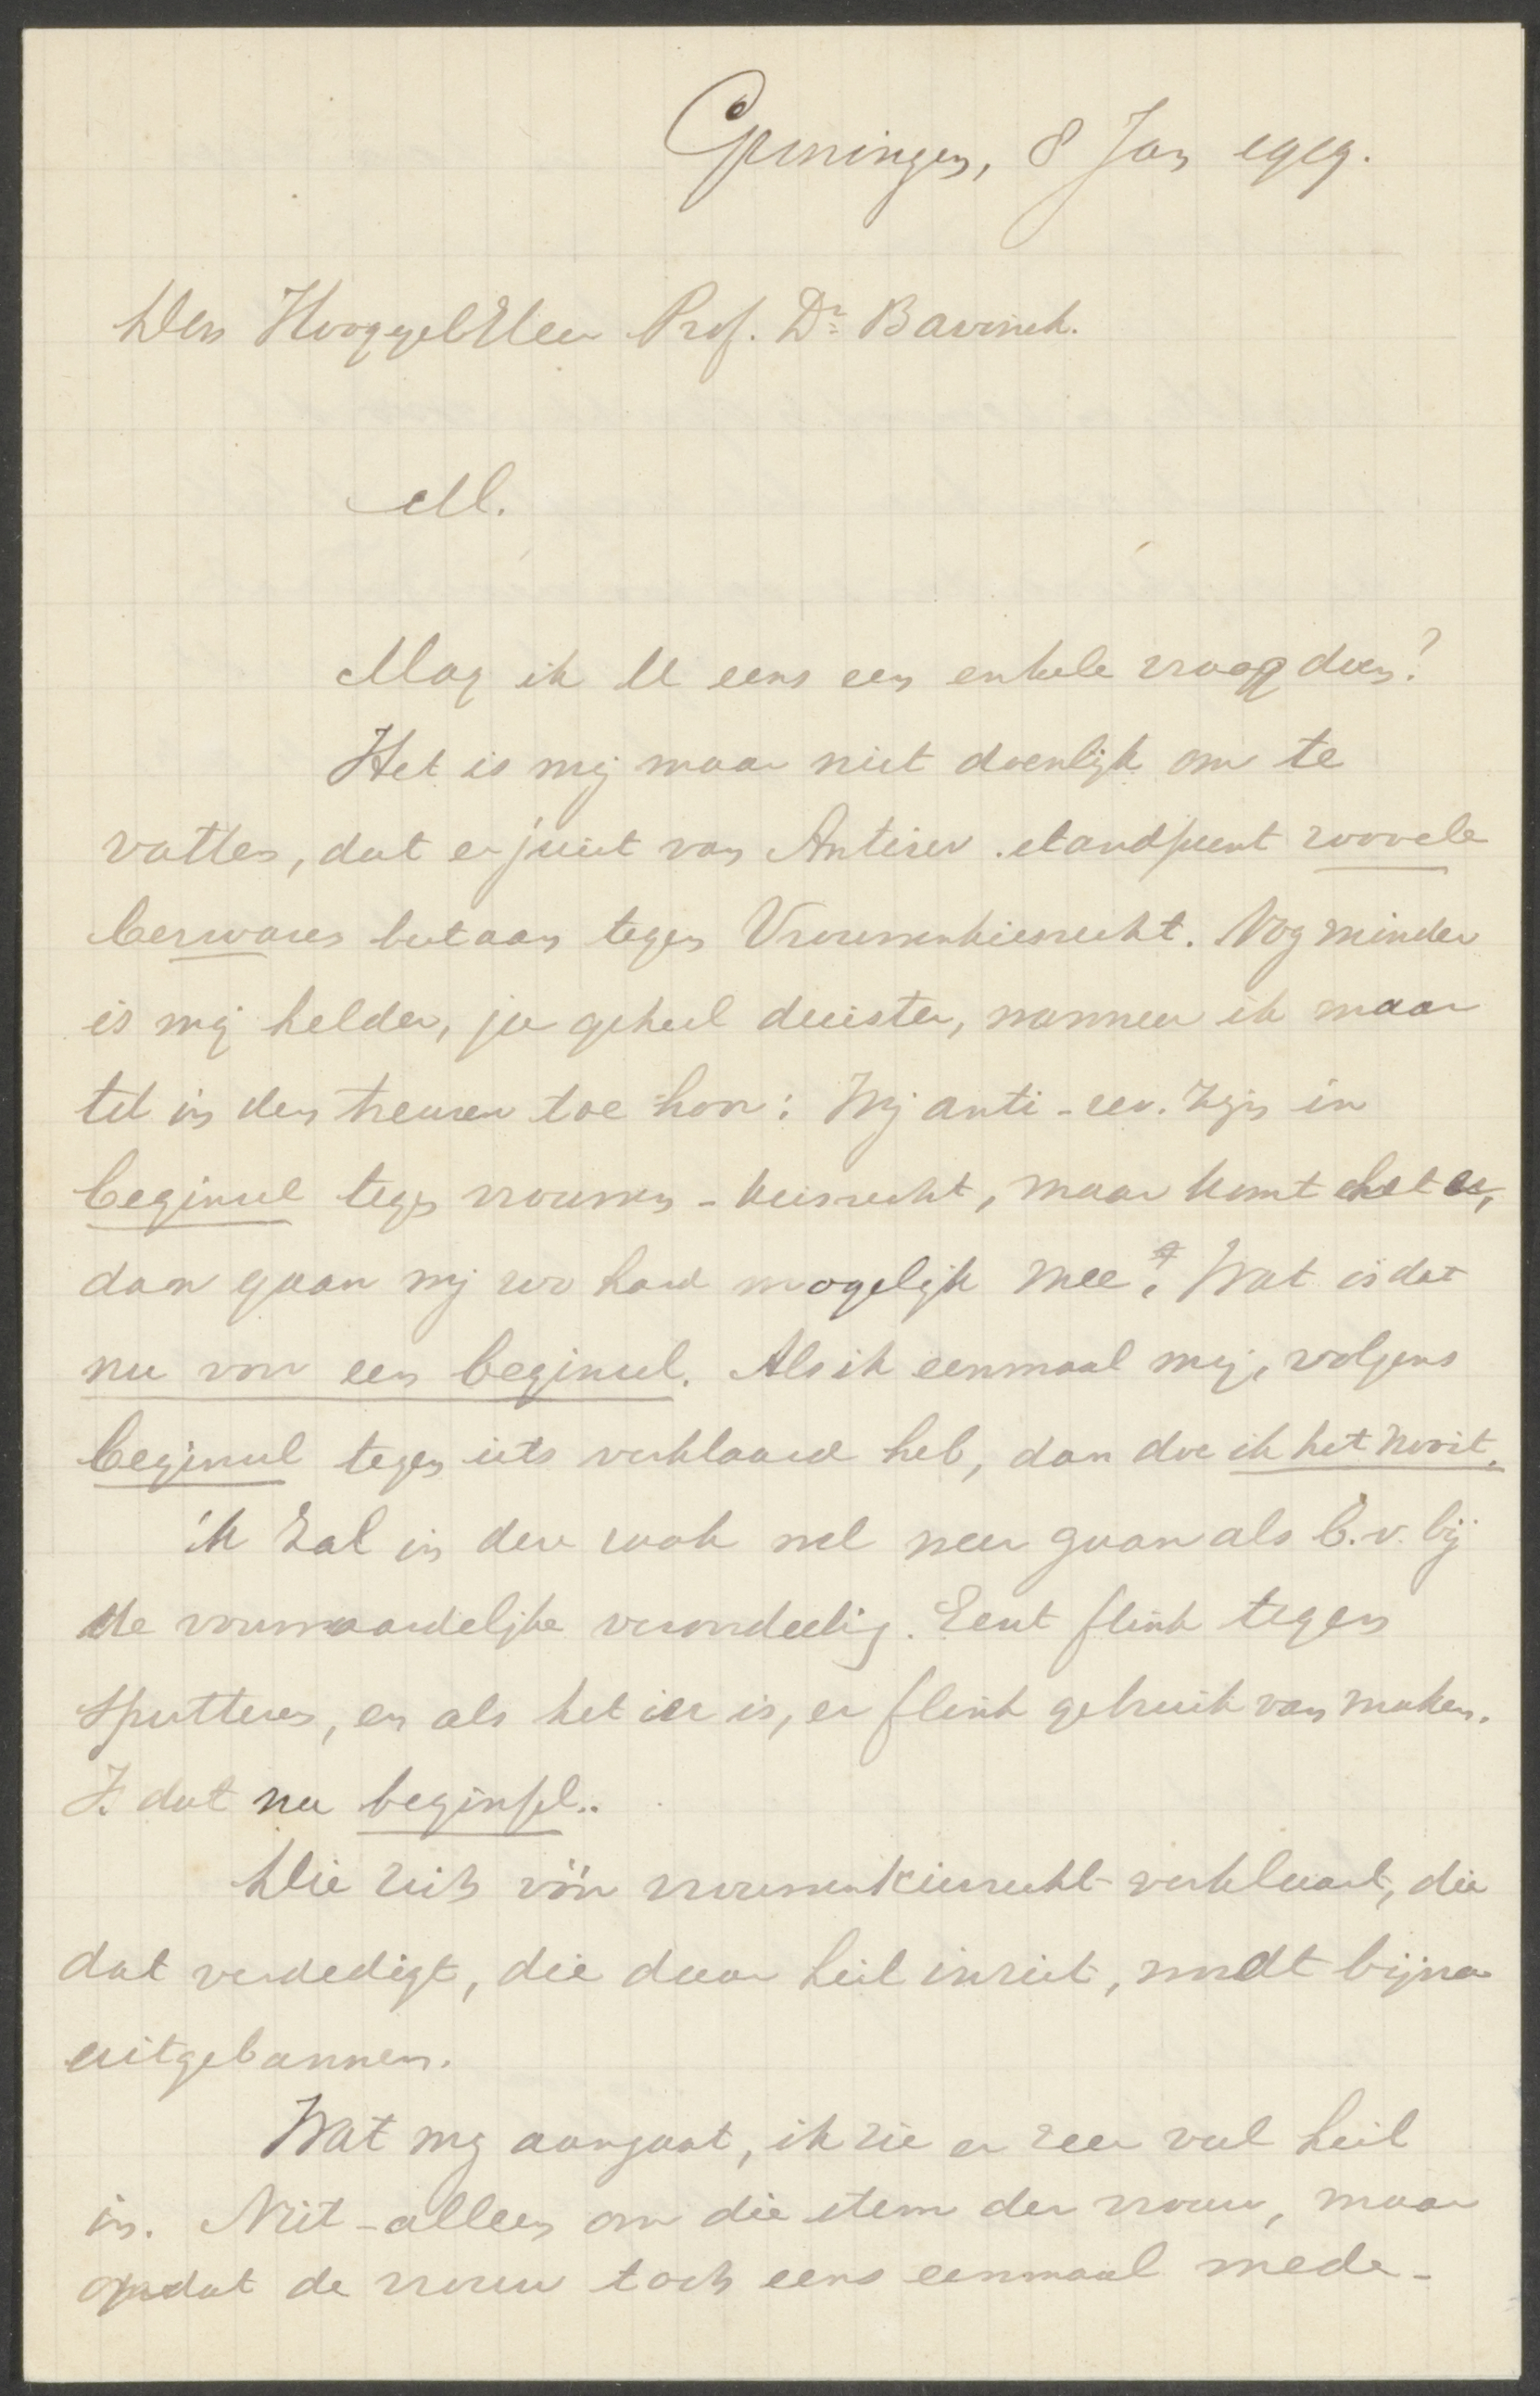 Groningen, 8 Jan 1919.
Den HooggelEleer Prof. Dr. Bavinck.
M.
Mag ik U eens een enkele vraag doen?
Het is mij maar niet doenlijk om te
vatten, dat er juist van Antirev. standpunt zoovele
bezwaren bestaan tegen Vrouwenkiesrecht. Nog minder
is mij helder, ja geheel duister, wanneer ik maar
tot in den treuren toe hoor: Wij anti-rev. zijn in
beginsel tegen vrouwen-kiesrecht, maar komt het er,
dan gaan wij zoo hard mogelijk mee? Wat is dat
nu voor een beginsel. Als ik eenmaal mij, volgens
beginsel tegen iets verklaard heb, dan doe ik het nooit.
ik zal in deze zaak wel weer gaan als b.v. bij
de voorwaardelijke veroordeeling. Eerst flink tegen
sputteren, en als het er is, er flink gebruik van maken.
Is dat nu beginsel..
Die zich vóór vrouwenkiesrecht verklaart, die
dat verdedigt, die daar heil inziet, wordt bijna
uitgebannen.
Wat mij aangaat, ik zie er zeer veel heil
in. Niet-alleen om die stem der vrouw, maar
opdat de vrouw toch eens eenmaal mede-